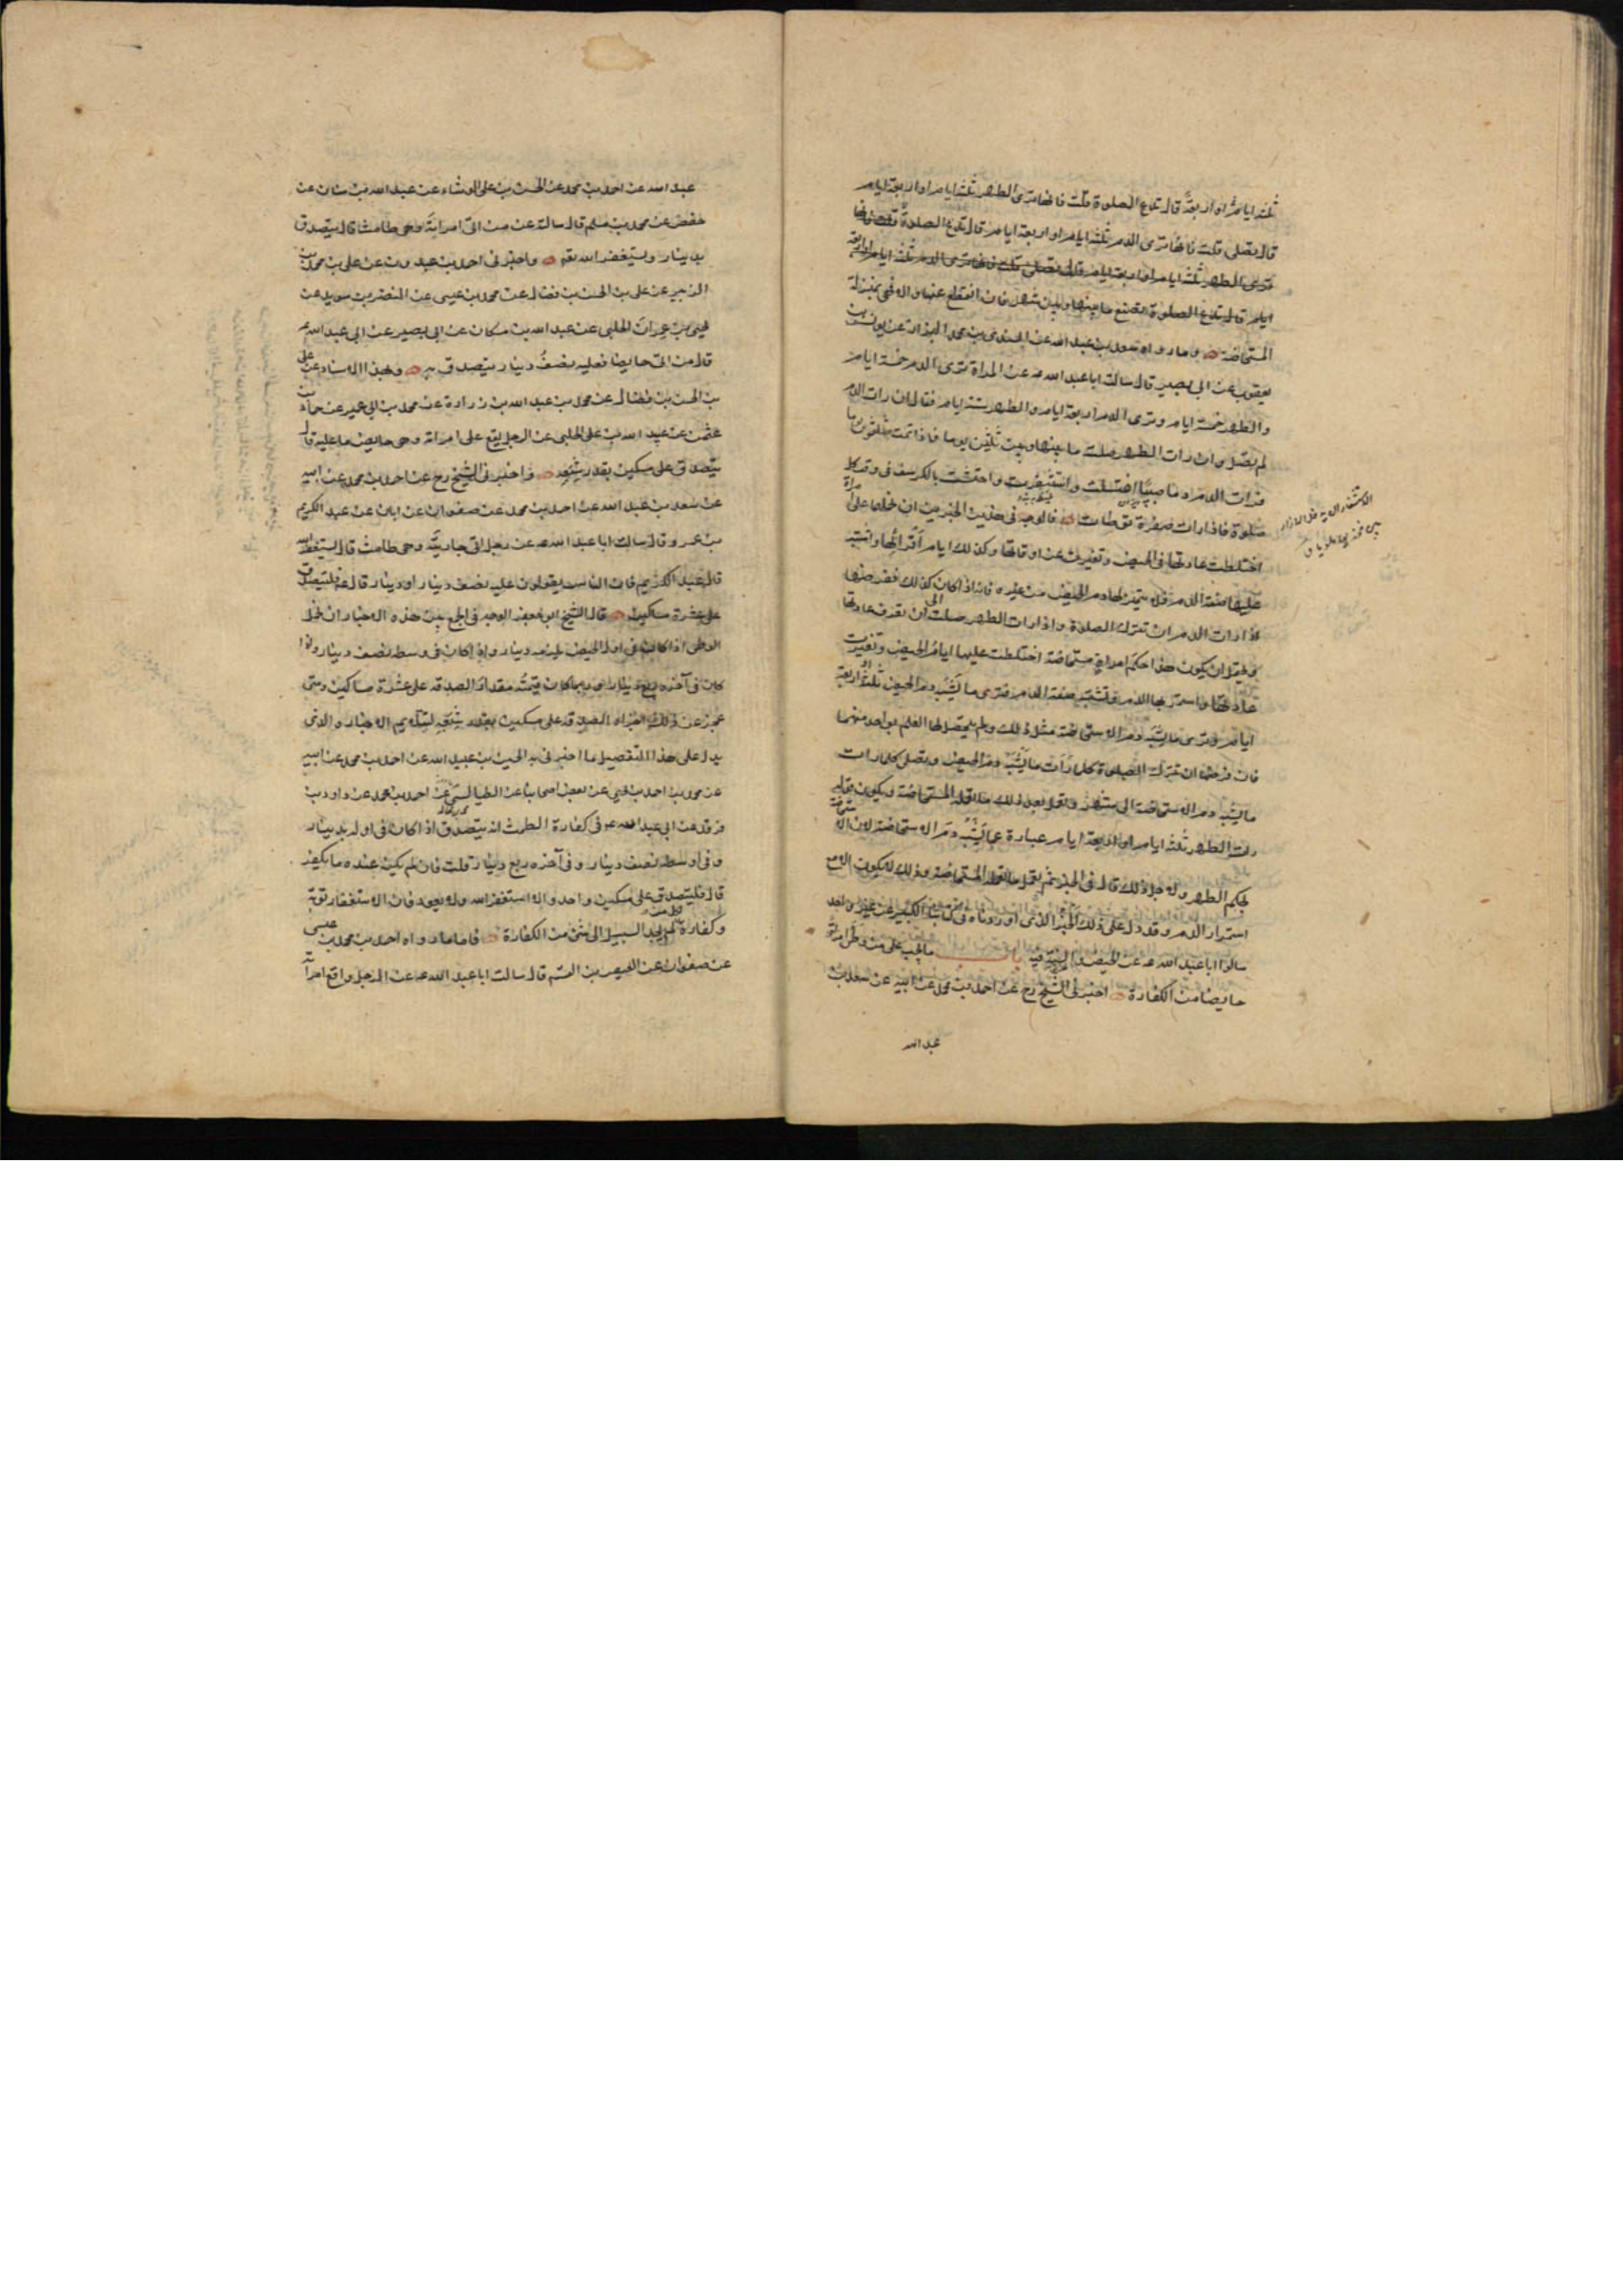 ثلثة ايام او اربعة قال تدع الصلوة قلت فانها ترى الطهر ثلثة ايام او اربعة ايام
قال تصلى قلت فانها ترى الدم ثلثة ايام او اربعة ايام قال تدع الصلوة قلت فانها
ترى الطهر ثلثة ايام او اربعة ايام قال تصلى قلت فانها ترى الدم ثلثة ايام او اربعة
ايام قال تدع الصلوة تصنع ما بينها وبين شهر فان انقطع عنها والا فهى بمنزلة
المستحاضة وما رواه سعد بن عبد الله عن السندى بن محمد البزاز عن يونس بن
يعقوب عن ابى بصير قال سالت ابا عبد الله عن المراة ترى الدم خمسة ايام
والطهر خمسة ايام وترى الدم اربعة ايام والطهر ستة ايام فقال ان رات الدم
لم تصل وان رات الطهر صلت ما بينها وبين ثلثين يوما فاذا تمت ثلثون يوما
فرات الدم دما صبيبا اغتسلت واستثفرت واحتشت بالكرسف فى وقت كل
صلوة فاذا رات صفرة توضات فالوجه فى هذين الخبرين ان نحملها على امراة
اختلطت عادتها فى الحيض وتغيرت عن اوقاتها وكذلك ايام اقرائها واشتبه
عليها صفة الدم فلا يتميز لها دم الحيض من غيره فانه اذا كان كذلك ففرضها
اذا رات الدم ان تترك الصلوة واذا رات الطهر صلت الى ان تعرف عادتها
ويحتمل ان يكون هذا حكم امراة مستحاضة اختلطت عليها ايام الحيض وتغيرت
عادتها واستمر بها الدم وتشتبه صفة الدم فترى ما يشبه دم الحيض ثلثة او اربعة
ايام وترى ما يشبه دم الاستحاضة مثل ذلك ولم يتحصل لها العلم بواحد منهما
فان فرضها ان تترك الصلوة كلما رات ما يشبه دم الحيض وتصلى كلما رات
ما يشبه دم الاستحاضة الى شهر وتعمل بعد ذلك ما تعمله المستحاضة ويكون قوله
رات الطهر ثلثة ايام او اربعة ايام عبارة عما يشبه دم الاستحاضة لان الاستحاضة
بحكم الطهر ولاجل ذلك قال فى الخبر ثم تعمل ما تعمله المستحاضة وذلك لا يكون الا مع
استمرار الدم وقد دل على ذلك الخبر الذى اوردناه فى كتابنا الكبير عن غير واحد
سالوا ابا عبد الله عن الحيض والسنة فيه باب ما يجب على من وطى امراة
حايضا من الكفارة اخبرنى الشيخ رح عن احمد بن محمد عن ابيه عن سعد بن
عبد الله
عبد الله عن احمد بن محمد عن الحسن بن على الوشاء عن عبد الله بن سنان عن
حفص عن محمد بن مسلم قال سالته عن من اتى امراته وهى طامث قال يتصدق
بدينار ويستغفر الله تع واخبرنى احمد بن عبدون عن على بن محمد بن
الزبير عن على بن الحسن بن فضال عن محمد بن عيسى عن النضر بن سويد عن
يحيى بن عمران الحلبى عن عبد الله بن مسكان عن ابى بصير عن ابى عبد الله ع
قال من اتى حايضا فعليه نصف دينار يتصدق به وبهذا الاسناد عن على
بن الحسن بن فضال عن محمد بن عبد الله بن زرارة عن محمد بن ابى عمير عن حماد بن
عثمن عن عبيد الله بن على الحلبى عن الرجل يقع على امراته وهى حايض ما عليه قال
يتصدق على مسكين بقدر شبعه واخبرنى الشيخ رح عن احمد بن محمد عن ابيه
عن سعد بن عبد الله عن احمد بن محمد عن صفوان عن ابان عن عبد الكريم
بن عمرو قال سالت ابا عبد الله عن رجل اتى جاريته وهى طامث قال يستغفر الله
قال عبد الكريم فان الناس يقولون عليه نصف دينار او دينار قال ع فليتصدق
على عشرة مساكين قال الشيخ ابو جعفر الوجه فى الجمع بين هذه الاخبار ان نحمل
الوطى اذا كان فى اول الحيض يلزمه دينار واذا كان فى وسطه نصف دينار واذا
كان فى آخره ربع دينار وربما كان قيمته مقدار الصدقة على عشرة مساكين ومتى
عجز عن ذلك اجزاه الصدقة على مسكين بقدر شبعه لتتلايم الاخبار والذى
يدل على هذا التفصيل ما اخبرنى به الحسين بن عبيد الله عن احمد بن محمد عن ابيه
عن محمد بن احمد بن يحيى عن بعض اصحابنا عن الطيالسى عن احمد بن محمد عن داود بن
فرقد عن ابى عبد الله ع فى كفارة الطمث انه يتصدق اذا كان فى اوله بدينار
وفى اوسطه نصف دينار وفى آخره ربع دينار قلت فان لم يكن عنده ما يكفر
قال فليتصدق على مسكين واحد والا استغفر الله ولا يعود فان الاستغفار توبة
وكفارة لمن لم يجد السبيل الى شئ من الكفارة فاما ما رواه احمد بن محمد بن عيسى
عن صفوان عن العيص بن القسم قال سالت ابا عبد الله عن الرجل واقع امراته